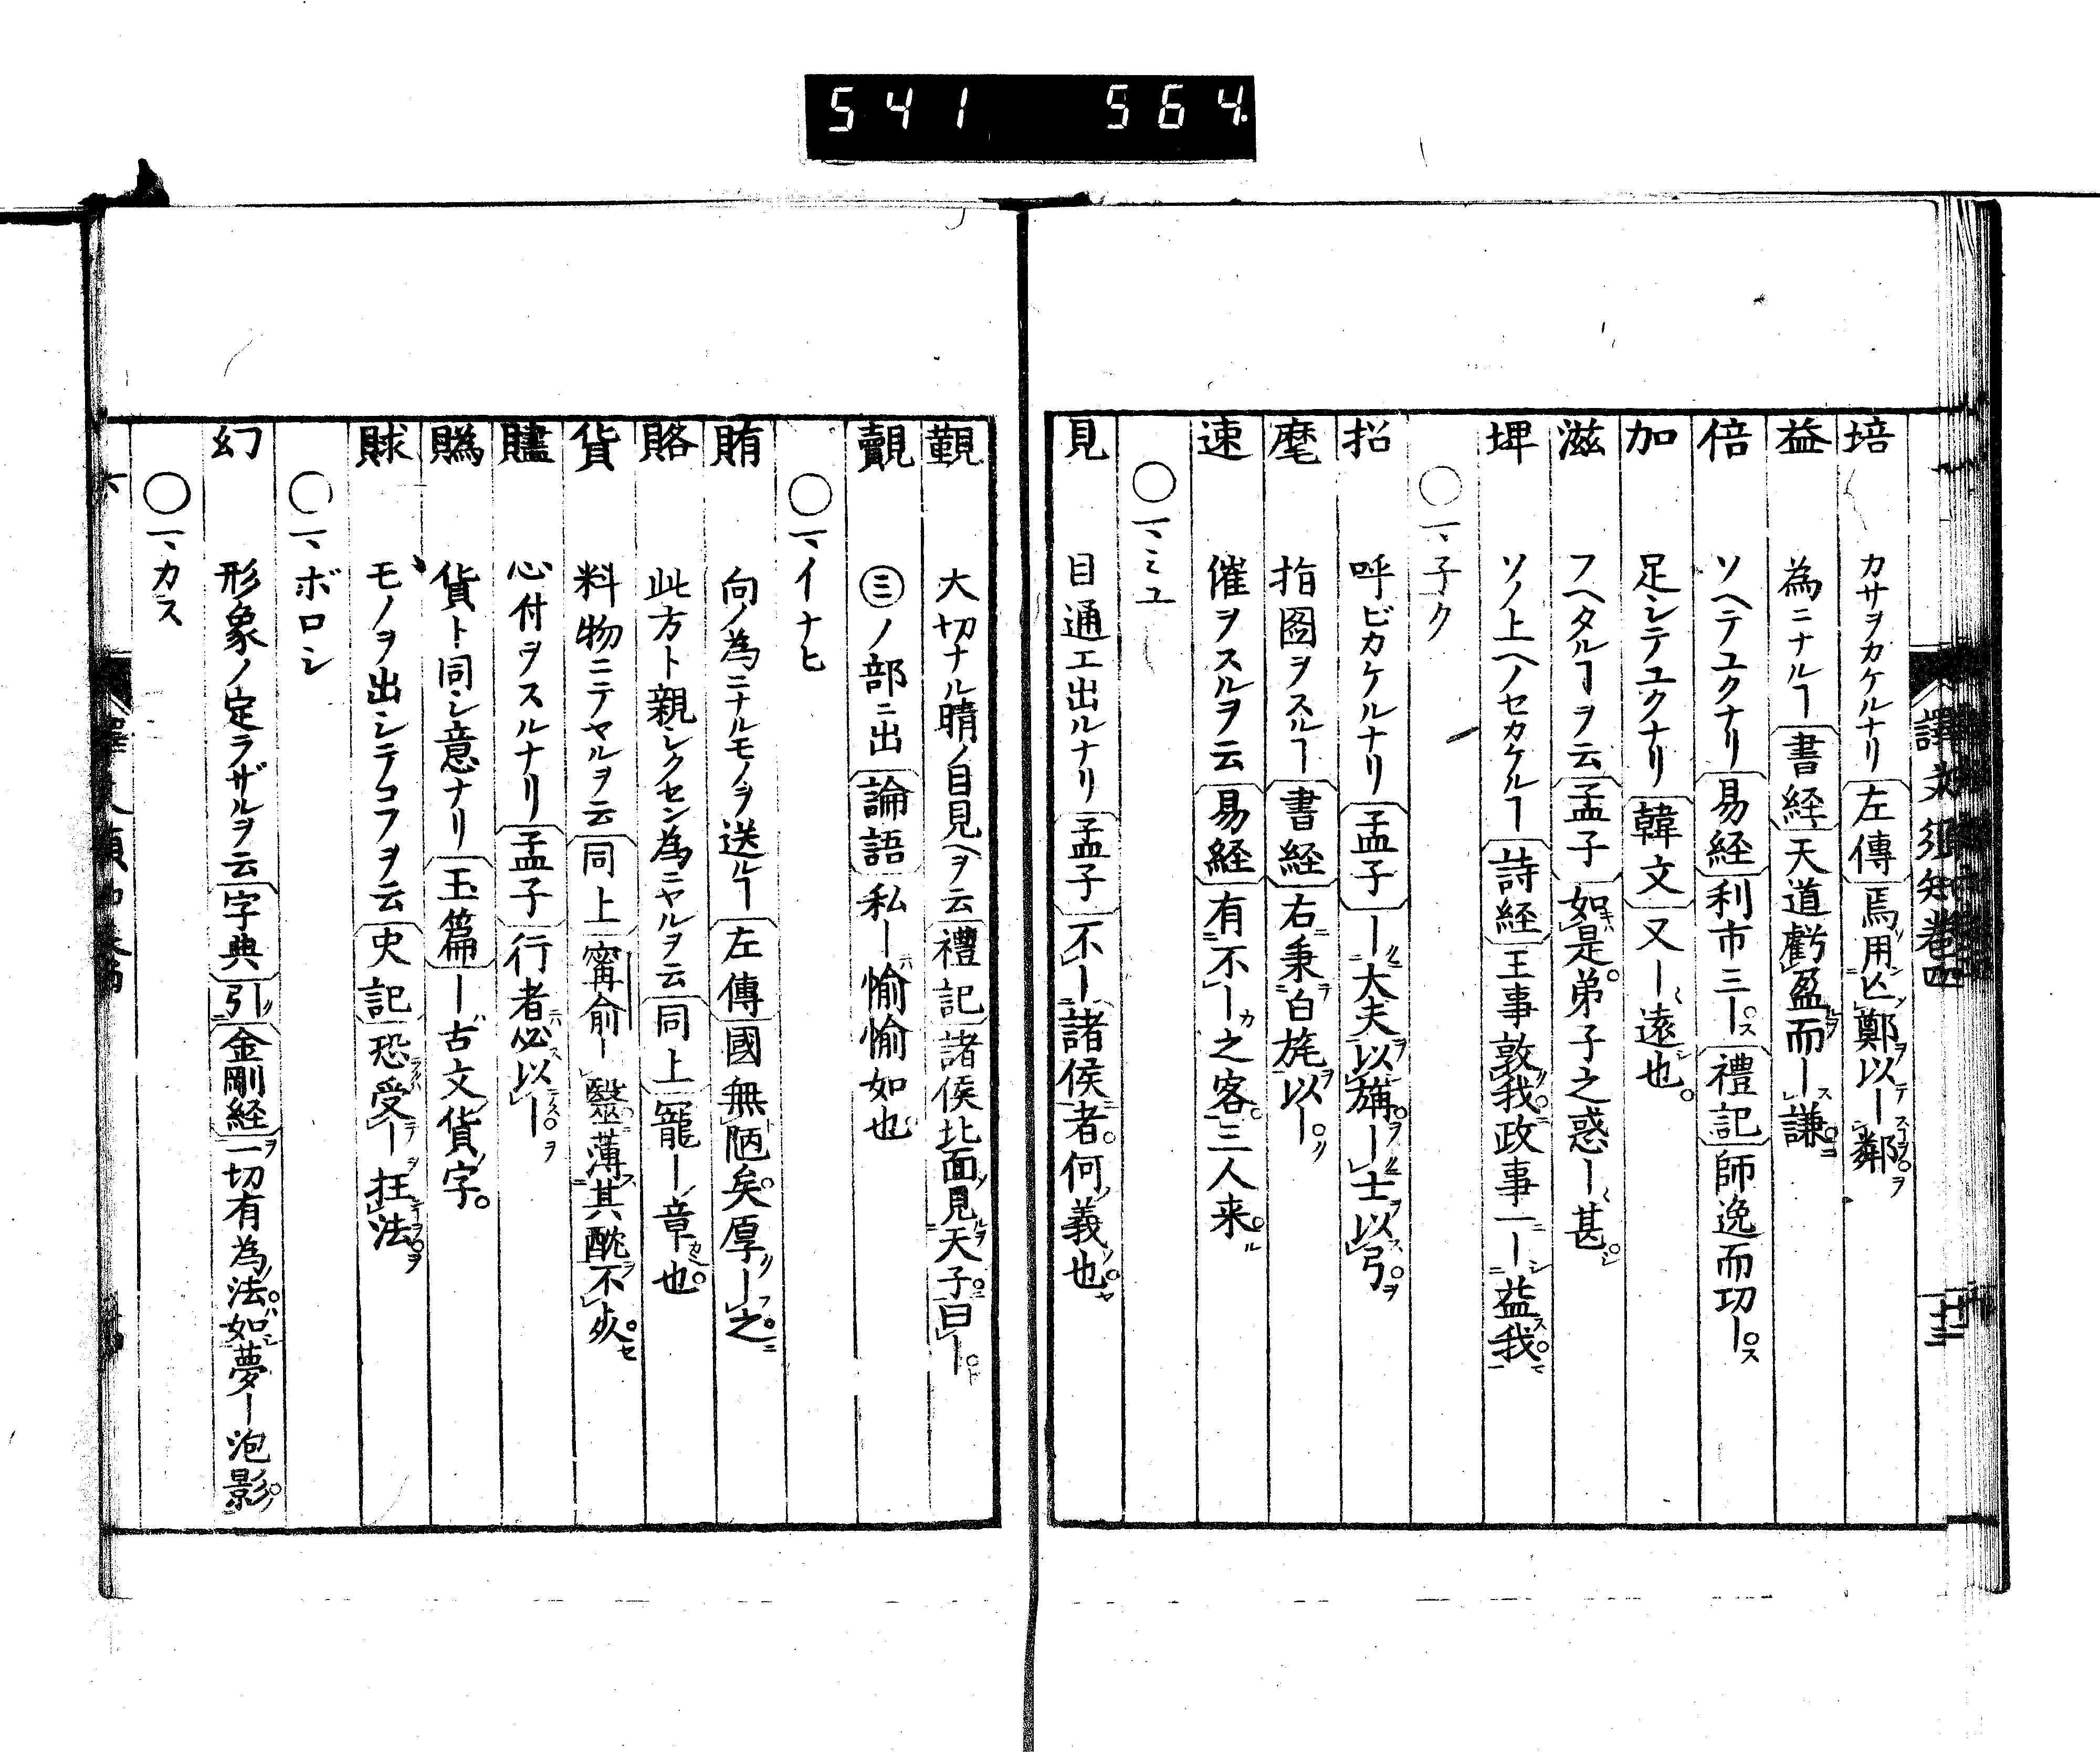 541 564
譯文須知卷四
培 カサヲカケルナリ 左傳 焉用亡鄭以ー鄰
益 為ニナルヿ 書経 天道虧盈而ー謙
倍 ソヘテユクナリ 易経 利市三ー 禮記 師逸而功ー
加 足シテユクナリ 韓文 又ー遠也
滋 フヘタルヿヲ云 孟子 如是弟子之惑ー甚
埤 ソノ上ヘノセカケルヿ 詩経 王事敦我政事一ー益我
〇一、子ク
招 呼ビカケルナリ 孟子 ー大夫以旃ー士以弓
麾 指圖ヲスルヿ 書経 右秉白旄以ー
速 催ヲスルヲ云 易経 有不ー之客三人来
〇一、ミユ
見 目通エ出ルナリ 孟子 不ー諸侯者何義也
覲 大切ナル晴ノ目見ヘヲ云 禮記 諸侯北面見天子曰ー
覿 ㊂ノ部ニ出 論語 私ー愉愉如也
〇一、イナヒ
賄 向ノ為ニナルモノヲ送ルヿ 左傳 國無陋矣厚ー之
賂 此方ト親シクセン為ニヤルヲ云 同上 寵ー章也
貨 料物ニテヤルヲ云 同上 甯俞ー醫薄其酖不死
贐 心付ヲスルナリ 孟子 行者必以ー
賵 貨ト同シ意ナリ 玉篇 ー古文貨字
賕 モノヲ出シテコフヲ云 史記 恐受ー枉法
〇一、ボロシ
幻 形象ノ定ラザルヲ云 字典 引 金剛経 一切有為法如夢ー泡影
〇一、カス